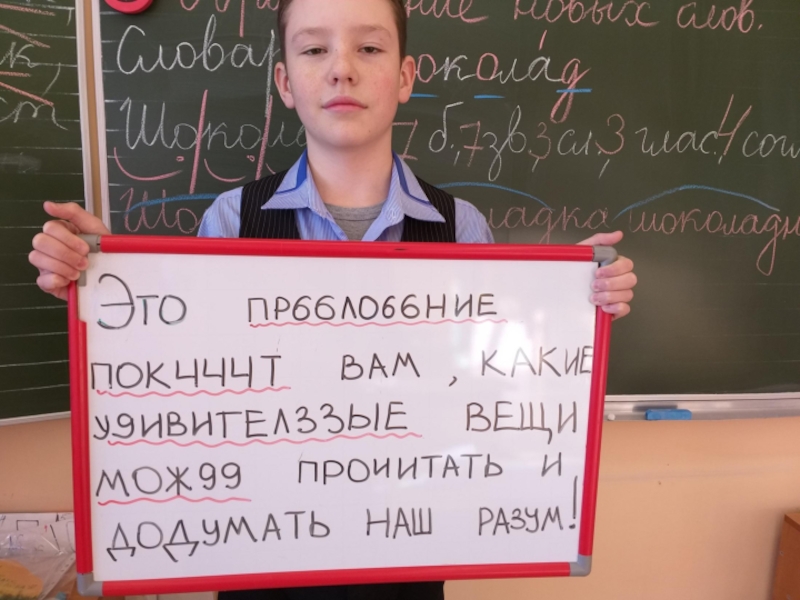 новых слов.
Слова
околад
Шокола 7 б, 7 зв, 3 сл, 3 глас, 4 согл
Шо ладка шоколадн
Это ПР66ЛО66НИЕ
ПОКЧЧЧТ ВАМ, КАКИЕ
У9ИВИТЕЛ33ЫЕ ВЕЩИ
МОЖ99 ПРОЧИТАТЬ И
ДОДУМАТЬ НАШ РАЗУМ!